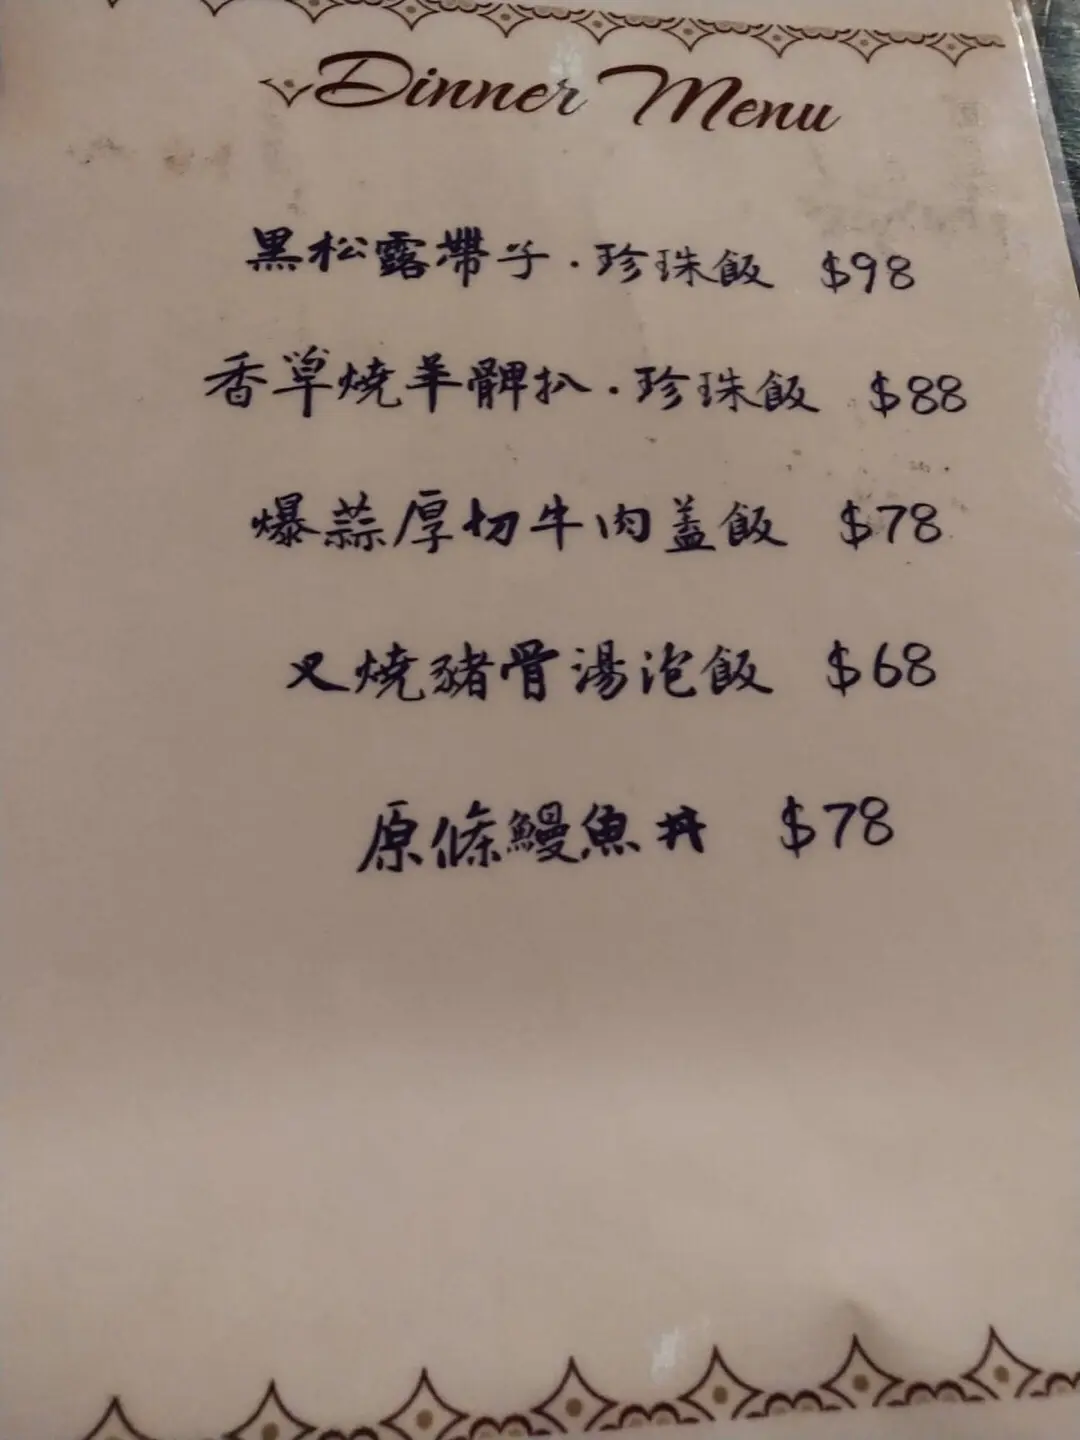 Dinner Menu
黑松露帶子．珍珠飯 $98
香草燒羊髀扒．珍珠飯 $88
爆蒜厚切牛肉蓋飯 $78
叉燒豬骨湯泡飯 $68
原條鰻魚丼 $78